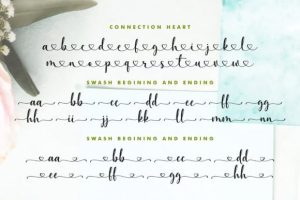 CONNECTION HEART
a b c d e f g h i j k l
m n o p q r s t u v w
SWASH BEGINING AND ENDING
aa bb cc dd ee ff gg
hh ii jj kk ll mm nn
SWASH BEGINING AND ENDING
aa bb cc dd
ee ff gg hh